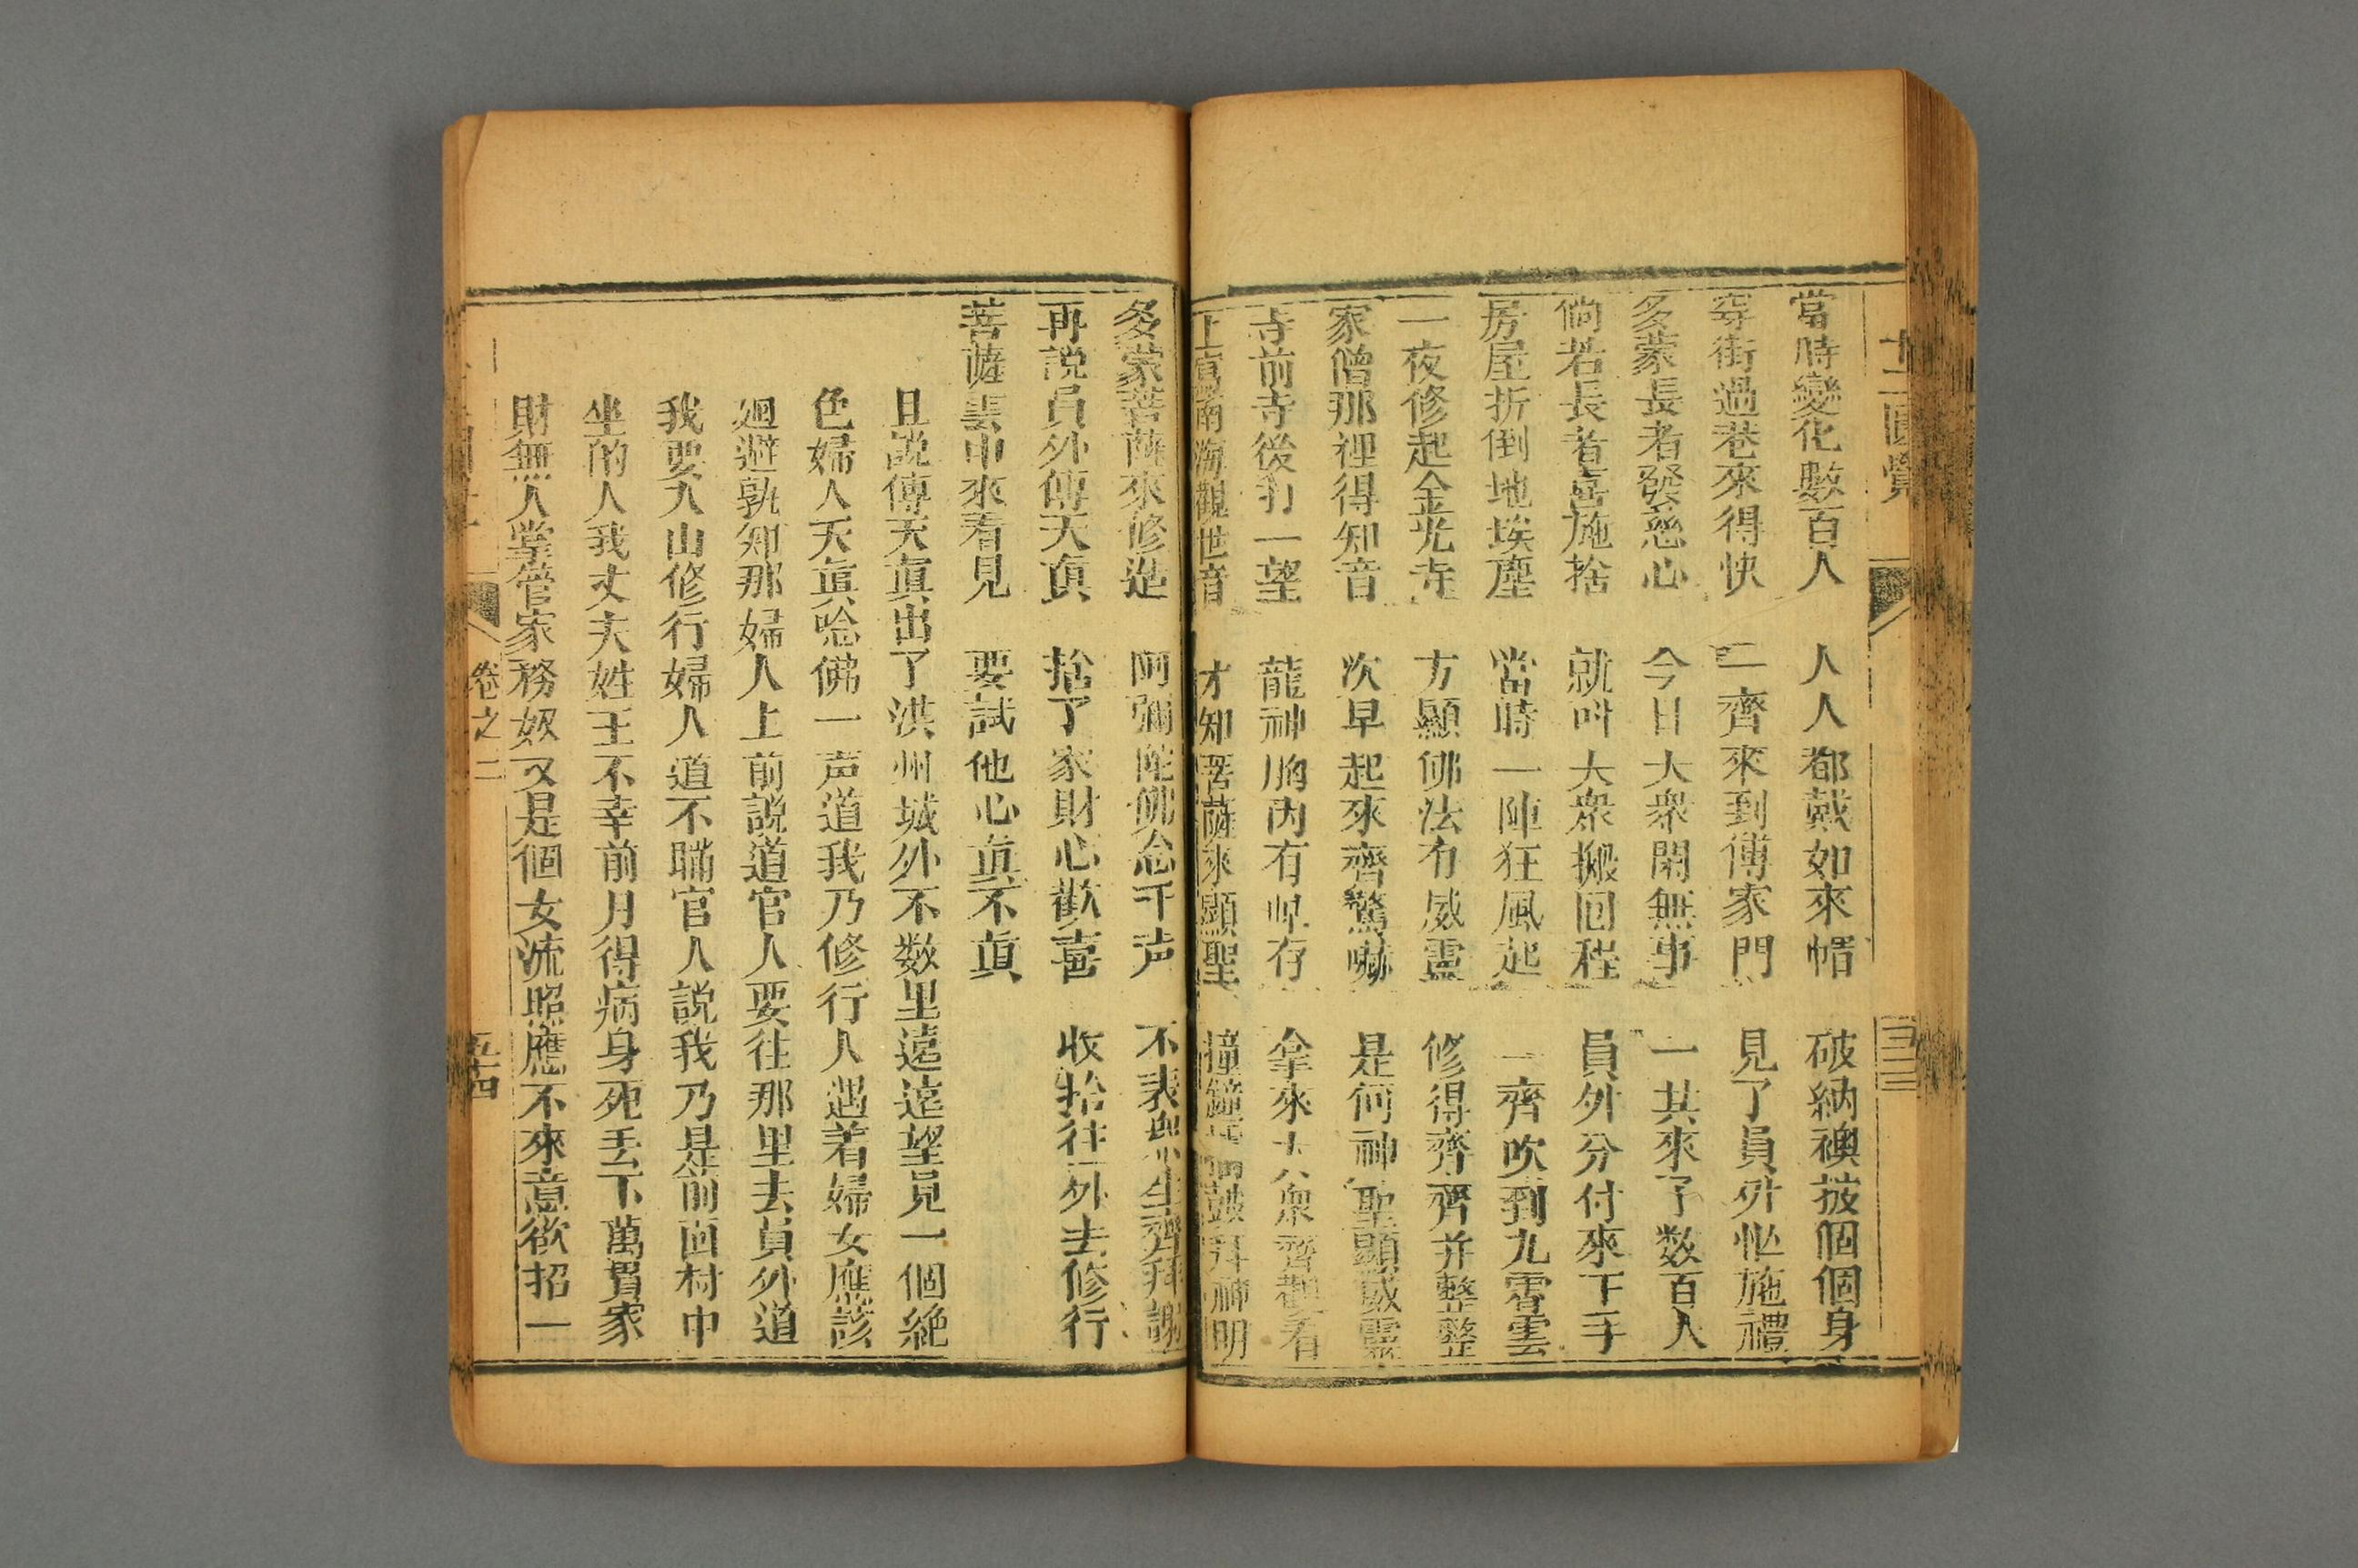 十二圓覺
當時變化數百人 人人都戴如來帽 破納襖披個個身
穿街過巷來得快 一齊來到傅家門 見了員外忙施禮
多蒙長者發慈心 今日大衆閑無事 一共來了数百人
倘若長者喜施捨 就叫大衆搬回程 員外分付來下手
房屋折倒地埃塵 當時一陣狂風起 一齊吹到九霄雲
一夜修起金光寺 方顯佛法有威靈 修得齊齊并整整
家僧那裡得知音 次早起來齊驚嚇 是何神聖顯威靈
寺前寺後打一望 龍神胸内有皂存 拿來大衆齊觀看
上寫南海觀世音 才知菩薩來顯聖 撞鐘鼓拜神明
多蒙菩薩來修造 阿彌陀佛念千声 不表衆生齊拜謝
再説員外傅天真 捨了家財心歡喜 收拾往外去修行
菩薩雲中來看見 要試他心真不真
且説傅天真出了洪州城外不数里遠遠望見一個絶
色婦人天真唸佛一声道我乃修行人遇着婦女應該
廻避孰知那婦人上前説道官人要往那里去員外道
我要入山修行婦人道不瞞官人説我乃是前面村中
坐的人我丈夫姓王不幸前月得病身死丢下萬貫家
財無人掌管家務奴又是個女流照應不來意欲招一
卷之二
五十四